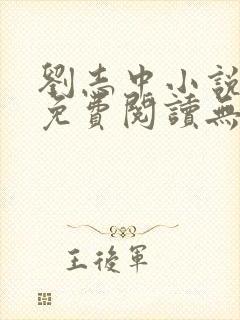 劉志中小說
免費閱讀無
王後軍